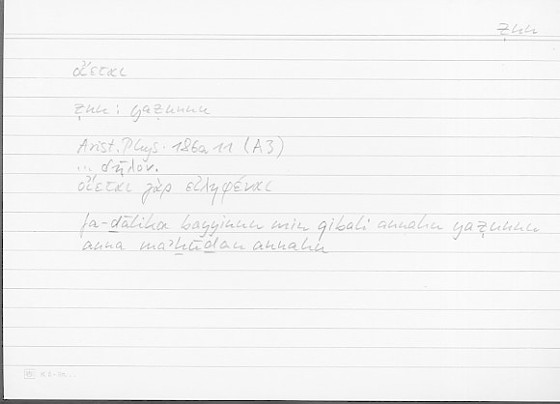 ẓnn
οἴεται
ẓnn : yaẓunnu
Arist. Phys. 186a 11 (A3)
... δῆλον.
οἴεται γὰρ εἰληφέναι
fa-ḏālika bayyinun min qibali annahu yaẓunnu
anna maʾḫūḏan annahu